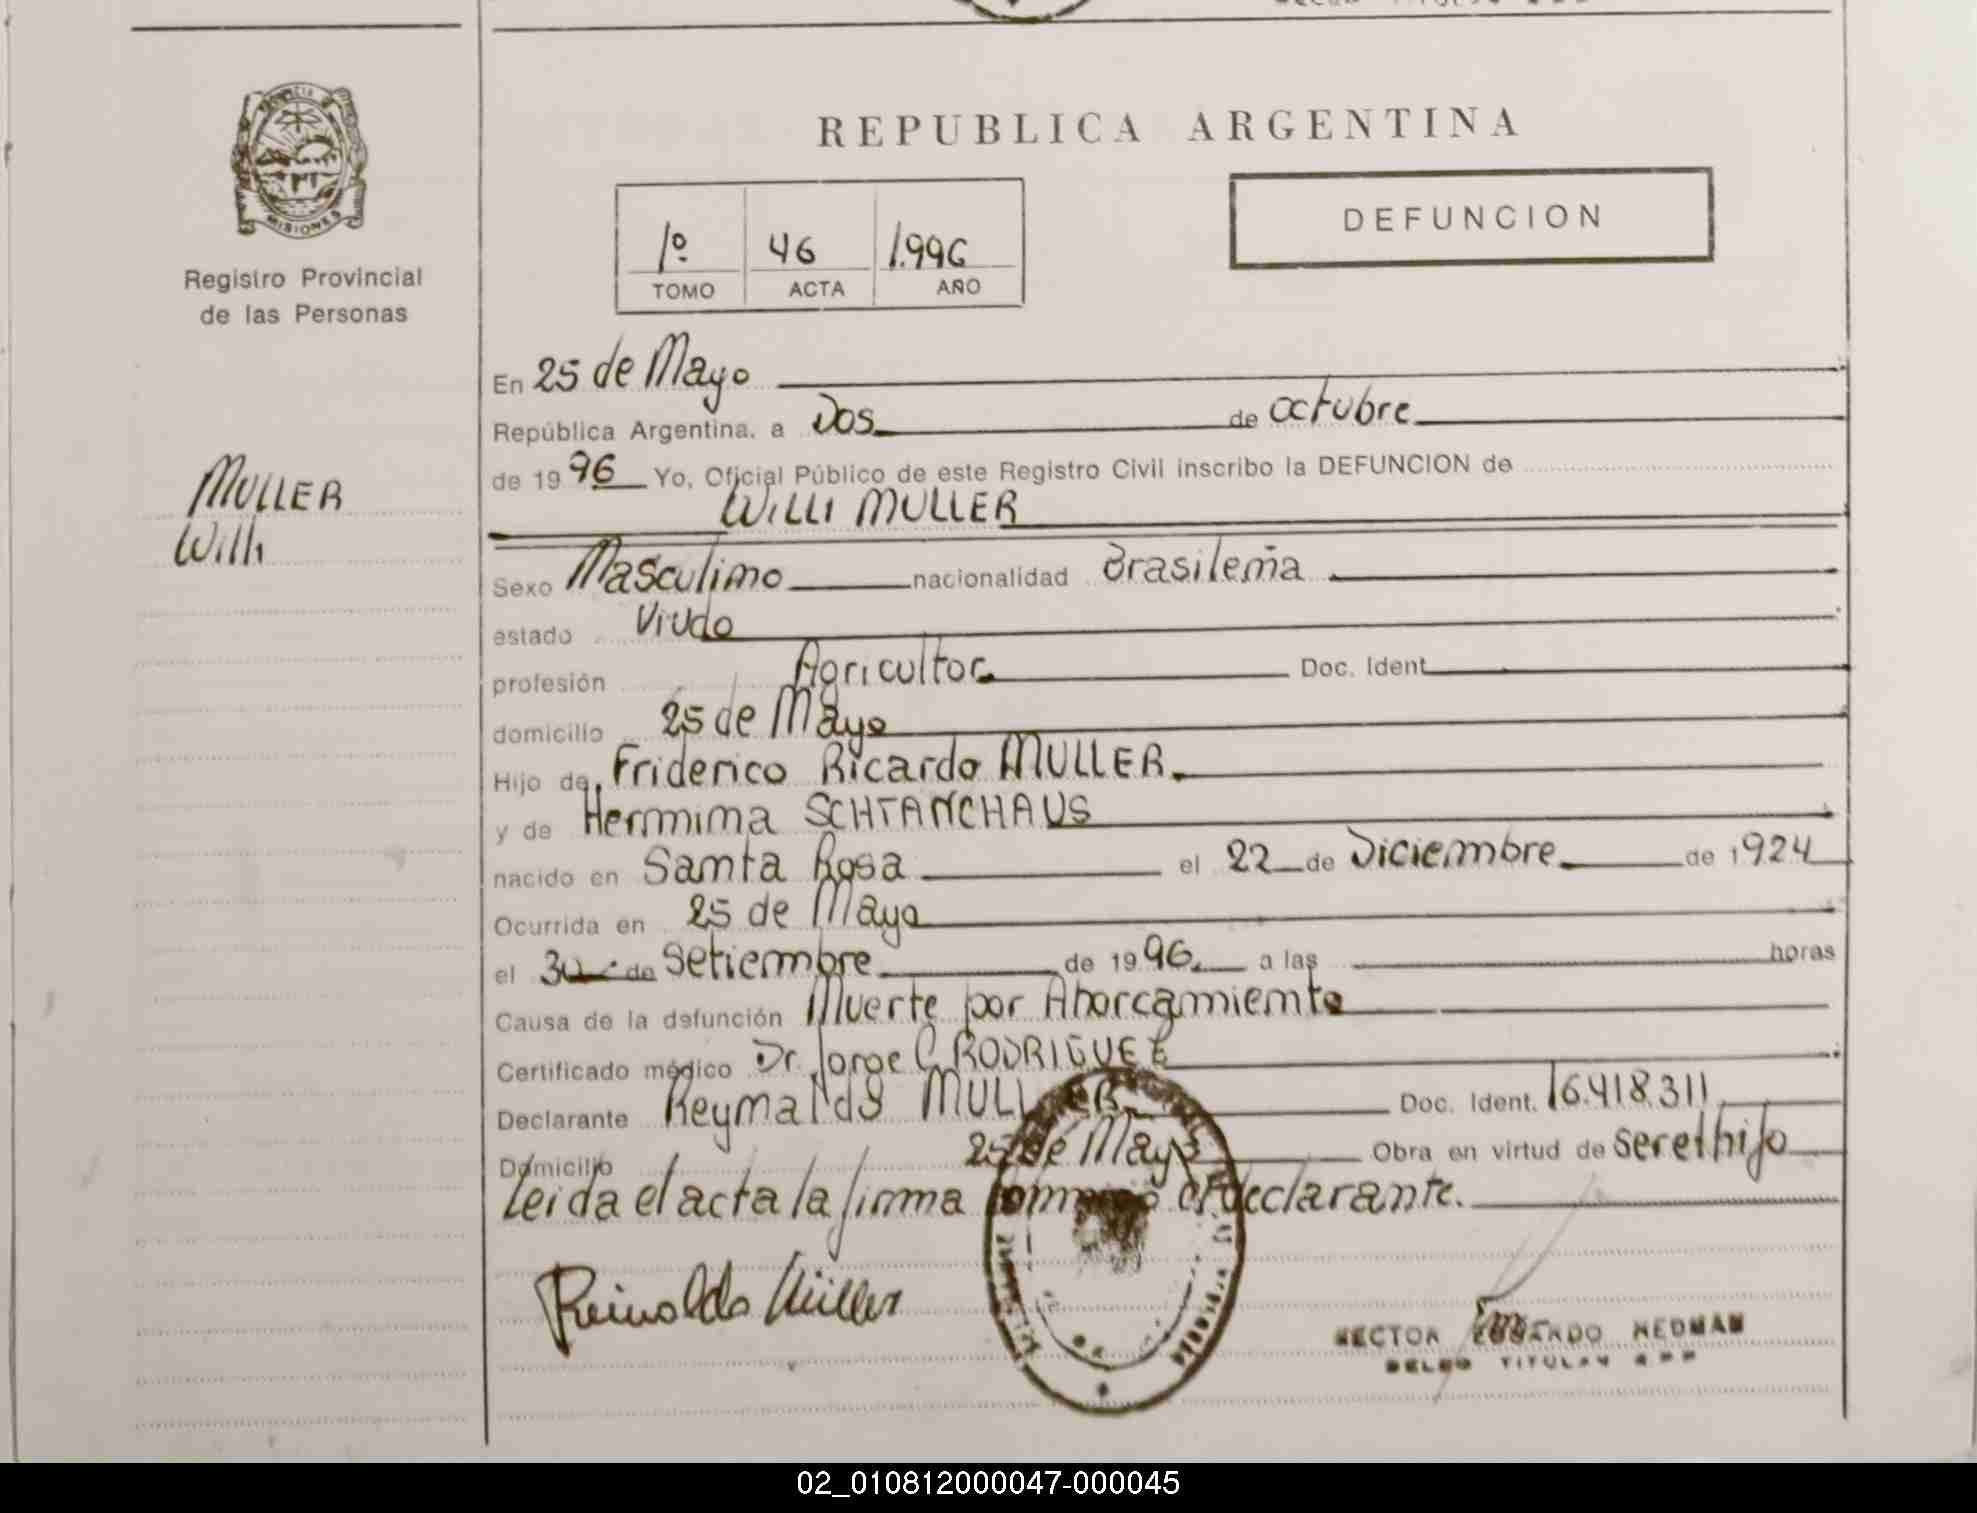 REPUBLICA ARGENTINA
PROVINCIA DE
MISIONES
Registro Provincial
de las Personas
1º 46 1.996
TOMO ACTA AÑO
DEFUNCION
MULLER
Willi
En 25 de Mayo
República Argentina, a Dos de octubre
de 1996 Yo, Oficial Público de este Registro Civil inscribo la DEFUNCION de
WILLI MULLER
Sexo Masculino nacionalidad Brasileña
estado Viudo
profesión Agricultor Doc. Ident
domicilio 25 de Mayo
Hijo de Friderico Ricardo MULLER
y de Hermina SCHTANCHAUS
nacido en Santa Rosa el 22 de Diciembre de 1924
Ocurrida en 25 de Mayo
el 30 de Setiembre de 1996 a las horas
Causa de la defunción Muerte por Ahorcamiento
Certificado médico Dr. Jorge C. RODRIGUEZ
Declarante Reynaldo MULLER Doc. Ident. 16.418.311
Domicilio 25 de Mayo Obra en virtud de ser el hijo
Leida el acta la firma conmigo el declarante.
Reinoldo Müller
HECTOR EDUARDO NEDMAN
TITULAR
02_010812000047-000045